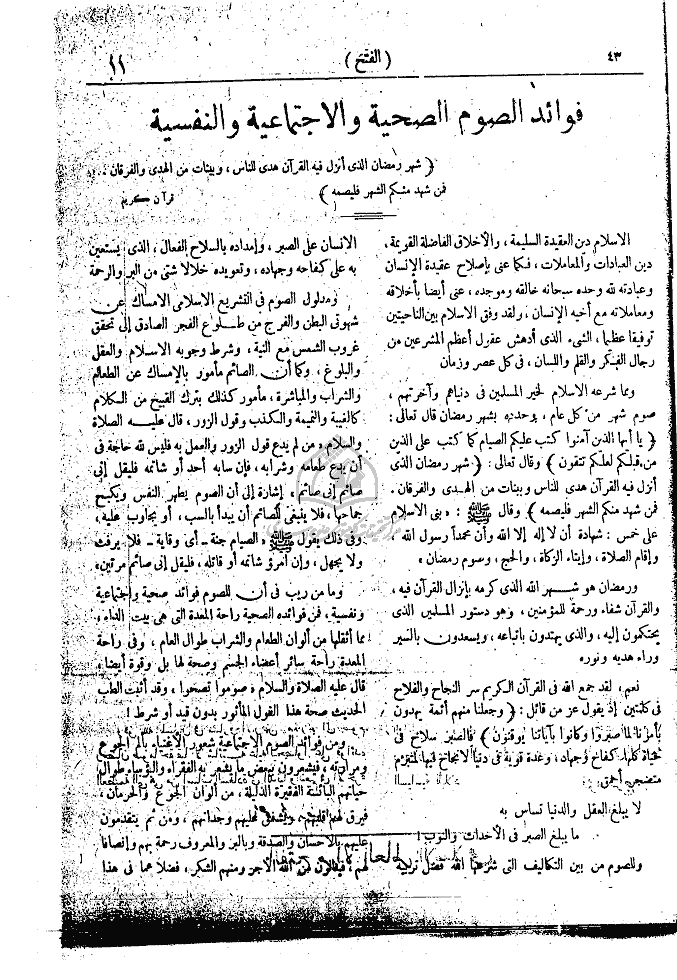 ٤٣
( الفتح )
١١
فوائد الصوم الصحية والاجتماعية والنفسية
﴿ شهر رمضان الذى أنزل فيه القرآن هدى للناس ، وبينات من الهدى والفرقان ..
فمن شهد منكم الشهر فليصمه ﴾
قرآن كريم
الاسلام دين العقيدة السليمة ، والأخلاق الفاضلة القويمة ،
دين العبادات والمعاملات ، فكما عنى بإصلاح عقيدة الإنسان
وعبادته لله وحده سبحانه خالقه وموجده ، عنى أيضا بأخلاقه
ومعاملاته مع أخيه الإنسان ، ولقد وفق الاسلام بين الناحيتين
توفيقا عظيما ، الشىء الذى أدهش عقول أعظم المشرعين من
رجال الفكر والقلم واللسان ، فى كل عصر وزمان
ومما شرعه الاسلام لخير المسلمين فى دنياهم وآخرتهم ،
صوم شهر من كل عام ، بشهر رمضان قال تعالى :
﴿ يا أيها الذين آمنوا كتب عليكم الصيام كما كتب على الذين
من قبلكم لعلكم تتقون ﴾ وقال تعالى : ﴿ شهر رمضان الذى
أنزل فيه القرآن هدى للناس وبينات من الهدى والفرقان .
فمن شهد منكم الشهر فليصمه ﴾ وقال ﷺ : « بنى الاسلام
على خمس : شهادة أن لا إله إلا الله وأن محمداً رسول الله ،
وإقام الصلاة ، وإيتاء الزكاة ، والحج ، وصوم رمضان »
ورمضان هو شهر الله الذى كرمه بإنزال القرآن فيه ،
والقرآن شفاء ورحمة للمؤمنين ، وهو دستور المسلمين الذى
يحتكمون إليه ، والذى يهتدون باتباعه ، ويسعدون بالسير
وراء هديه ونوره
نعم ، لقد جمع الله فى القرآن الكريم سر النجاح والفلاح
فى كلمتين إذ يقول عز من قائل : ﴿ وجعلنا منهم أئمة يهدون
بأمرنا لما صبروا وكانوا بآياتنا يوقنون ﴾ فالصبر سلاح فى
حياة كلها كفاح وجهاد ، وعدة قوية فى دنيا لانجاح فيها لمنهزم
متضجر أحمق :
لا يبلغ العقل والدنيا تساس به
ما يبلغ الصبر فى الأحداث والنوب !
وللصوم من بين التكاليف التى شرعها الله فضل تربية
الانسان على الصبر ، وإمداده بالسلاح الفعال ، الذى يستعين
به على كفاحه وجهاده ، وتعويده خلالا شتى من البر والرحمة
ومدلول الصوم فى التشريع الاسلامى الامساك عن
شهوتى البطن والفرج من طلوع الفجر الصادق إلى تحقق
غروب الشمس مع النية ، وشرط وجوبه الاسلام والعقل
والبلوغ ، وكما أن الصائم مأمور بالإمساك عن الطعام
والشراب والمباشرة ، مأمور كذلك بترك القبيح من الكلام
كالغيبة والنميمة والكذب وقول الزور ، قال عليه الصلاة
والسلام « من لم يدع قول الزور والعمل به فليس لله حاجة فى
أن يدع طعامه وشرابه ، فإن سابه أحد أو شاتمه فليقل إنى
صائم إنى صائم » إشارة إلى أن الصوم يطهر النفس ويكبح
جماحها ، فلا ينبغى للصائم أن يبدأ بالسب ، أو يجاوب عليه ،
وفى ذلك يقول ﷺ « الصيام جنة – أى وقاية – فلا يرفث
ولا يجهل ، وإن امرؤ شاتمه أو قاتله ، فليقل إنى صائم مرتين »
وما من ريب فى أن للصوم فوائد صحية واجتماعية
ونفسية ، فمن فوائده الصحية راحة المعدة التى هى بيت الداء ،
مما أثقلها من ألوان الطعام والشراب طوال العام ، وفى راحة
المعدة راحة سائر أعضاء الجسم وصحة لها بل وقوة أيضا ،
قال عليه الصلاة والسلام « صوموا تصحوا » وقد أثبت الطب
الحديث صحة هذا القول المأثور بدون قيد أو شرط !
ومن فوائد الصوم الاجتماعية شعور الأغنياء بألم الجوع
ومرارته ، فيشعرون ببعض ما يشعر به الفقراء والبؤساء طوال
حياتهم البائسة الفقيرة الذليلة ، من ألوان الجوع والحرمان ،
فيرق لهم قلبهم ، ويشفق عليهم وجدانهم ، ومن ثم يتقدمون
عليهم بالاحسان والصدقة وبالبر والمعروف رحمة بهم وإنصافا
لهم ، فينالون من الله الأجر ومنهم الشكر ، فضلا عما فى هذا